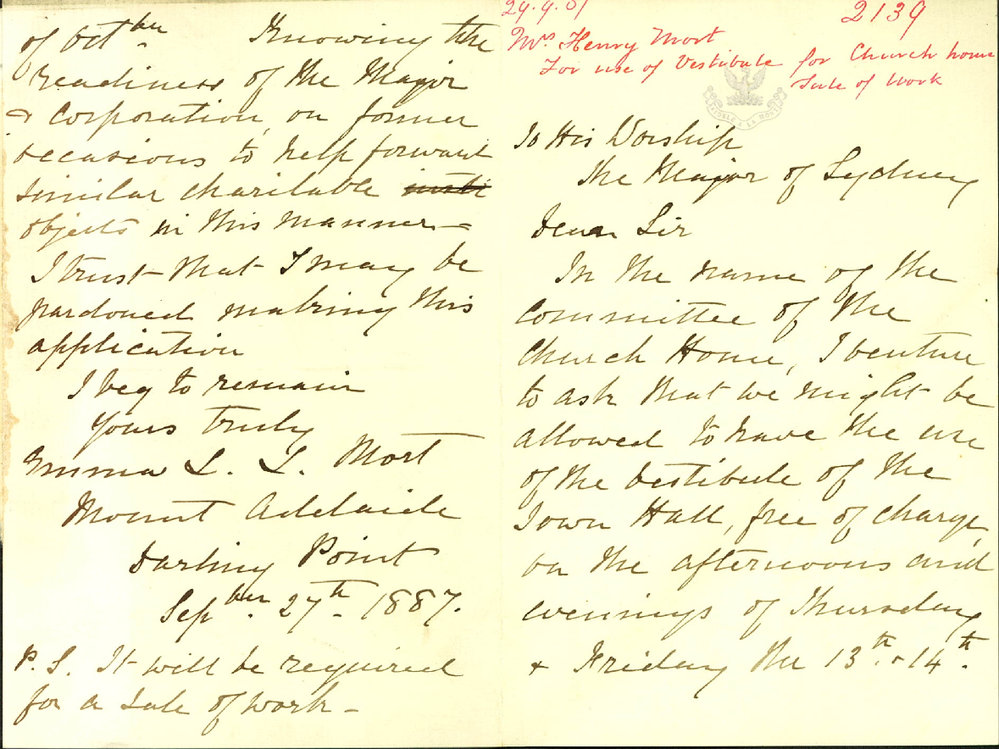 29.9.87 2139
Mrs Henry Mort
For use of Vestibule for Church home
Sale of Work
To His Worship
The Mayor of Sydney
Dear Sir
In the name of the
Committee of the
Church Home, I venture
to ask that we might be
allowed to have the use
of the vestibule of the
Town Hall, free of charge,
on the afternoons and
evenings of Thursday
& Friday the 13th & 14th.
of Octber. Knowing the
readiness of the Mayor
& Corporation, on former
occasions to help forward
similar charitable
objects in this manner -
I trust that I may be
pardoned making this
application
I beg to remain
Yours truly
Emma L. L. Mort
Mount Adelaide
Darling Point
Sepber. 27th. 1887.
P. S. It will be required
for a Sale of work -